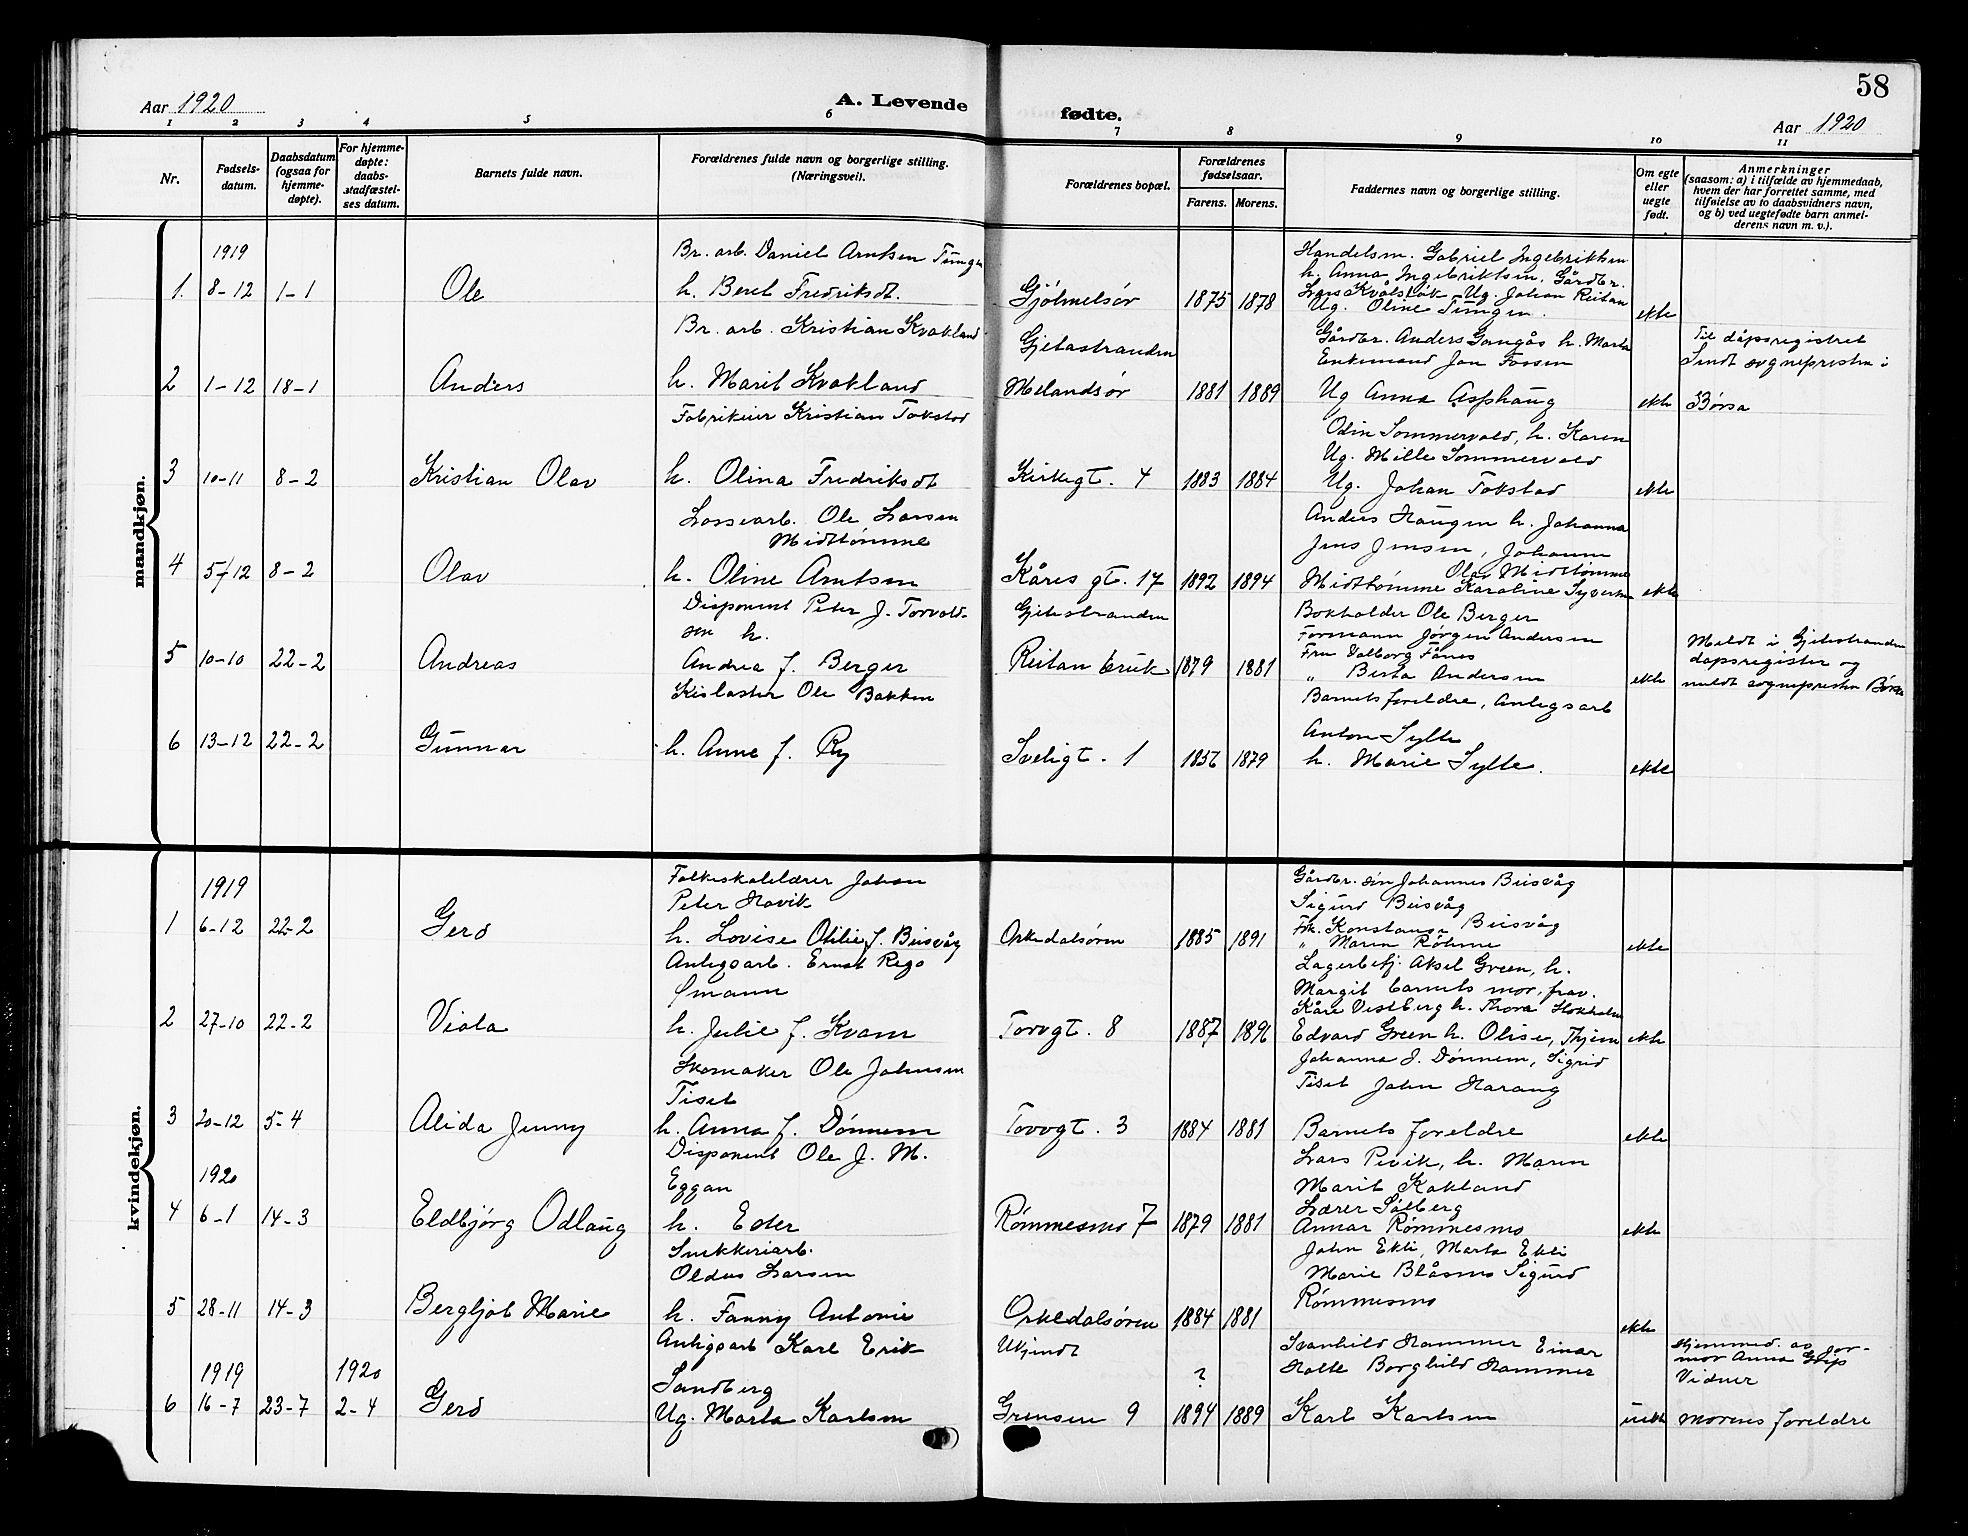 58
Aar 1920
A. Levende
fødte.
Aar 1920
1 2 3 4 5 6 7 8 9 10 11
Nr.
Fødsels-
datum.
Daabsdatum
(ogsaa for
hjemme-
døpte).
For hjemme-
døpte:
daabs-
stadfæstel-
ses datum.
Barnets fulde navn.
Forældrenes fulde navn og borgerlige stilling.
(Næringsvei).
Forældrenes bopæl.
Forældrenes
fødselsaar.
Farens. Morens.
Faddernes navn og borgerlige stilling.
Om egte
eller
uegte
født.
Anmerkninger
(saasom: a) i tilfælde av hjemmedaab,
hvem der har forrettet samme, med
tilføielse av to daabsvidners navn,
og b) ved uegtefødte barn anmel-
derens navn m. v.).
mandkjøn.
1919
1. 8-12 1-1 Ole
Br. arb. Daniel Arntsen Tungen
h. Beret Fredriksdt.
Gjølmelsør 1875 1878
Handelsm. Gabriel Ingebriktsen
h. Anna Ingebriktsen, Gårdbr.
Lars Kvålsløk Ug. Johan Reitan
Ug. Oline Tungen.
ekte
2 1-12 18-1 Anders
Br. arb. Kristian Kvakland
h. Marit Kvakland
Gjetastranden
Melandsør 1881 1889
Gårdbr. Anders Gangås h. Marta
Enkemand Jon Fossen
Ug Anna Asphaug
ekte
Til dåpsregistret
Sendt sogneprestn i
Børsa
3 10-11 8-2 Kristian Olav
Fabrikeier Kristian Tokstad
h. Olina Fredriksdt
Kirkegt. 4 1883 1884
Odin Sommervold, h. Karen
Ug. Mille Sommervold
Ug. Johan Tokstad
ekte
4 5/12 8-2 Olav
Lossearb. Ole Larsen
Midttømme
h. Oline Arntsen
Kåres gt. 17 1892 1894
Anders Haugen h. Johanna
Jens Jensen, Johann
Olav Midttømme
Midttømme Karoline Syversen
ekte
5 10-10 22-2 Andreas
Disponent Peter J. Torvold-
sen h.
Andrea f. Berger
Gjetestranden
Reitan bruk 1879 1881
Bokholder Ole Berger
Formann Jørgen Andersen
Fru Valborg Fånes
" Berta Andersen
ekte
Meldt i Gjetestranden
dapsregister og
meldt sogneprestn Børsa
6 13-12 22-2 Gunnar
Kislaster Ole Bakken
h. Anne f. Ry
Sveligt. 1 1856 1879
Barnets foreldre, Anlegsarb
Anton Sylte
h. Marie Sylte.
ekte
kvindekjøn.
1919
1 6-12 22-2 Gerd
Folkeskolelærer Johan
Peter Hovik
h. Lovise Otilie f. Busvåg
Orkedalsøren 1885 1891
Gårdbr. søn Johannes Busvåg
Sigurd Busvåg
Frk. Konstanse Busvåg
" Maren Røhme
ekte
2 27-10 22-2 Viola
Anlegsarb. Ernst Rego
Ømann
h. Julie f. Kvam
Torvgt. 8 1887 1896
Lagerbetj. Aksel Green, h.
Margit barnets mor, frav.
Kåre Vestberg h. Thora Stokholm
Edvard Green h. Olise, Thjem
ekte
3 20-12 5-4 Alida Jenny
Skomaker Ole Johnsen
Tiset
h. Anna f. Dønnem
Torvgt. 3 1884 1881
Johanna J. Dønnem, Sigrid
Tiset John Harang
Barnets foreldre
ekte
1920
4 6-1 14-3 Eldbjørg Odlaug
Disponent Ole J. M.
Eggan
h. Ester
Rømmesmo 7 1879 1881
Lars Pevik, h. Maren
Marit Kakland
Lærer Sølberg
Annar Rømmesmo
ekte
5 28-11 14-3 Bergljot Marie
Snekkeriarb.
Oldus Larsen
h. Fanny Antonie
Orkedalsøren 1884 1881
John Ekli, Marta Ekli
Marie Blåsmo Sigurd
Rømmesmo
ekte
1919 1920
6 16-7 23-7 2-4 Gerd
Anlegsarb Karl Erik
Sandberg
Ug. Marta Karlsen
Ukjendt
Grensen 9 ? 1894 1889
Svanhild Hammer Einar
Holte Borghild Hammer
Karl Karlsen
uekte
Hjemmed. av jor-
mor Anna Grip
Vidner
morens foreldre